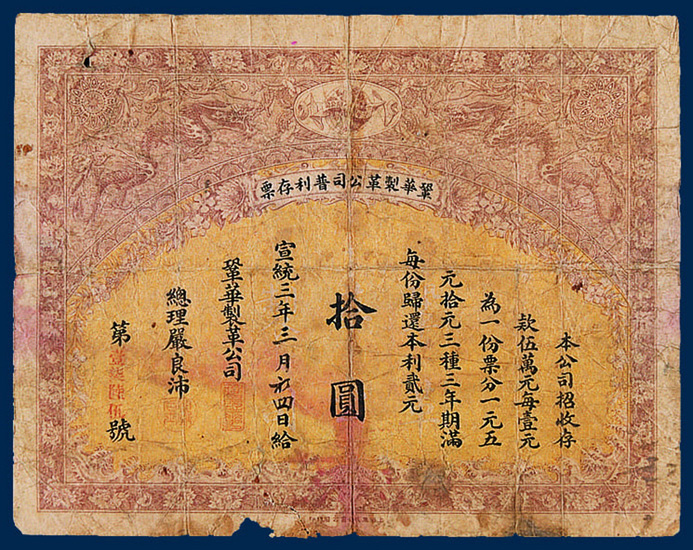 鞏華製革公司普利存票
本公司招收存
款伍萬元每壹元
為一份票分一元五
元拾元三種三年期滿
每份歸還本利貳元
拾圓
宣統三年三月初四日給
鞏華製革公司
總理嚴良沛
第壹柒陸伍號